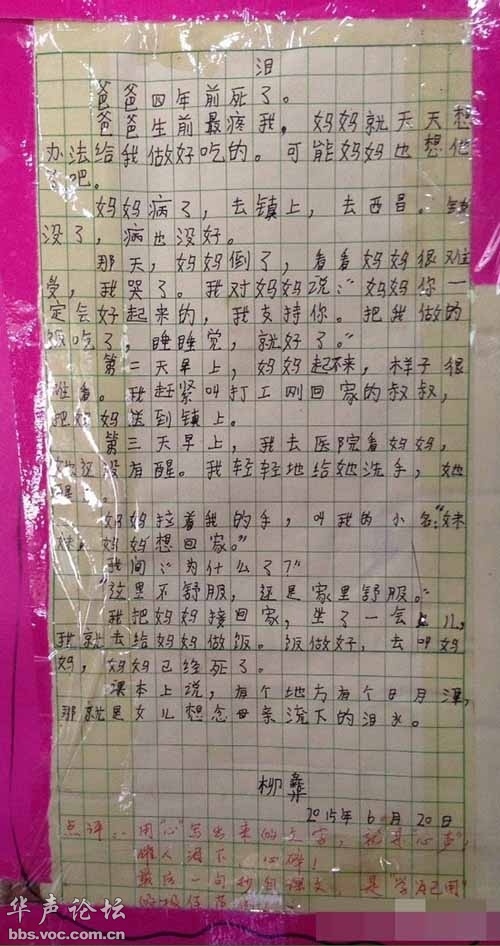 泪
爸爸四年前死了。
爸爸生前最疼我，妈妈就天天想
办法给我做好吃的。可能妈妈也想他
吧。
妈妈病了，去镇上，去西昌。钱
没了，病也没好。
那天，妈妈倒了，看看妈妈很难
受，我哭了。我对妈妈说：“妈妈你一
定会好起来的，我支持你。把我做的
饭吃了，睡睡觉，就好了。”
第二天早上，妈妈起不来，样子很
难看。我赶紧叫打工刚回家的叔叔，
把妈妈送到镇上。
第三天早上，我去医院看妈妈，
她没有醒。我轻轻地给她洗手，她
醒
妈妈拉着我的手，叫我的小名：“妹
妹，妈妈想回家。”
我问：“为什么了？”
“这里不舒服，还是家里舒服。”
我把妈妈接回家，坐了一会儿，
我就去给妈妈做饭。饭做好，去叫妈
妈，妈妈已经死了。
课本上说，有个地方有个日月潭，
那就是女儿想念母亲流下的泪水。
柳彝
2015年6月20日
点评：用“心”写出来的文字，就是“心声”，
催人泪下，心碎！
最后一句抄自课文，是“学为己用”
华声论坛
bbs.voc.com.cn